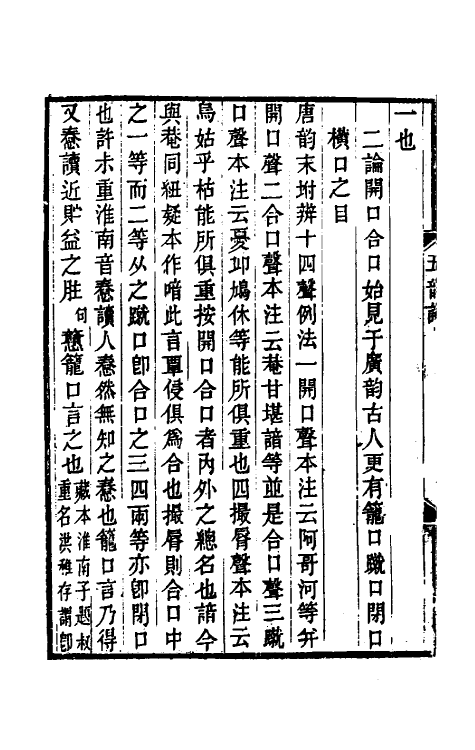 一也
二論開口合口始見于廣韵古人更有籠口䠞口閉口
橫口之目
唐韵末坿辨十四聲例法一開口聲本注云阿哥河等并
開口聲二合口聲本注云菴甘堪諳等並是合口聲三䠞
口聲本注云憂丘鳩休等能所俱重也四撮脣聲本注云
烏姑乎枯能所俱重按開口合口者內外之總名也諳今
與菴同紐疑本作喑此言覃侵俱爲合也撮脣則合口中
之一等而二等从之䠞口卽合口之三四兩等亦卽閉口
也許未重淮南音惷讀人惷然無知之惷也籠口言乃得
又惷讀近貯益之肚句戇籠口言之也藏本淮南子題叔
重名洪稚存謂卽
五韵論